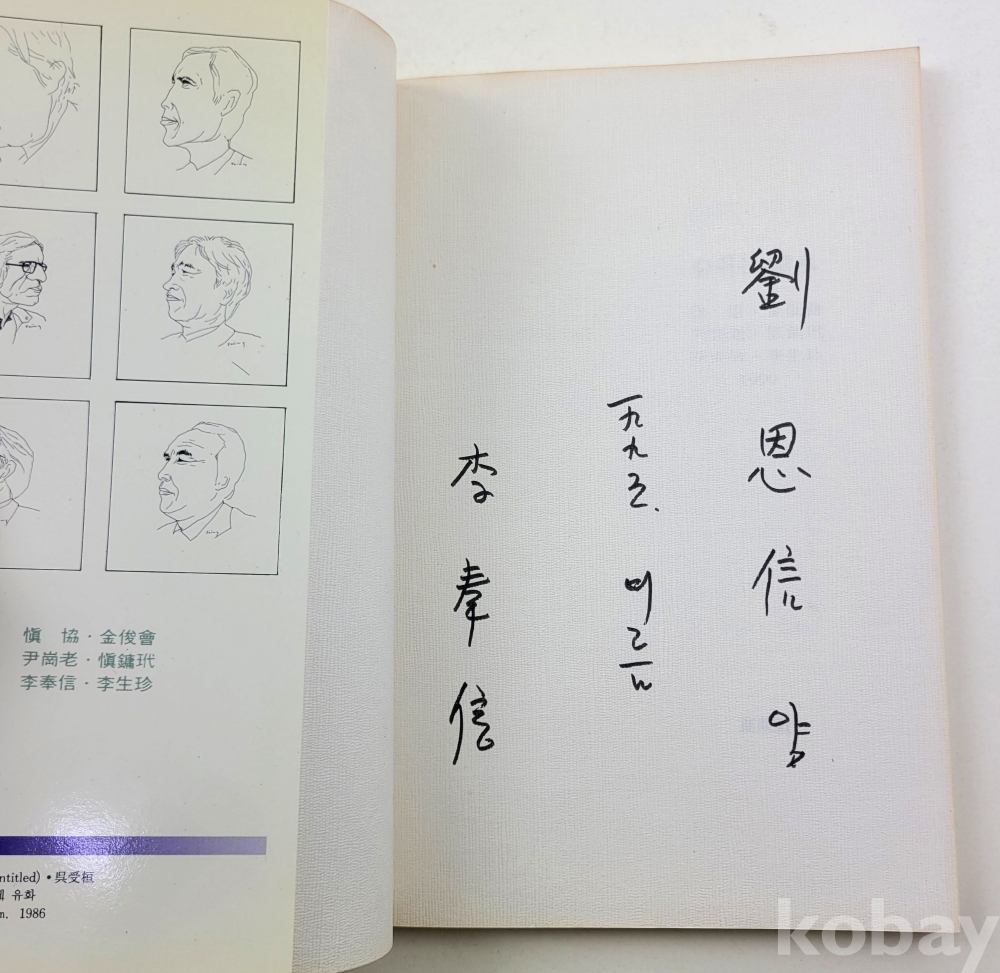 愼 協·金俊會
尹崗老·愼鏞玳
李奉信·李生珍
ntitled) • 吳受桓
유화
m. 1986
劉恩信 양
一九九五. 여름
李奉信
kobay